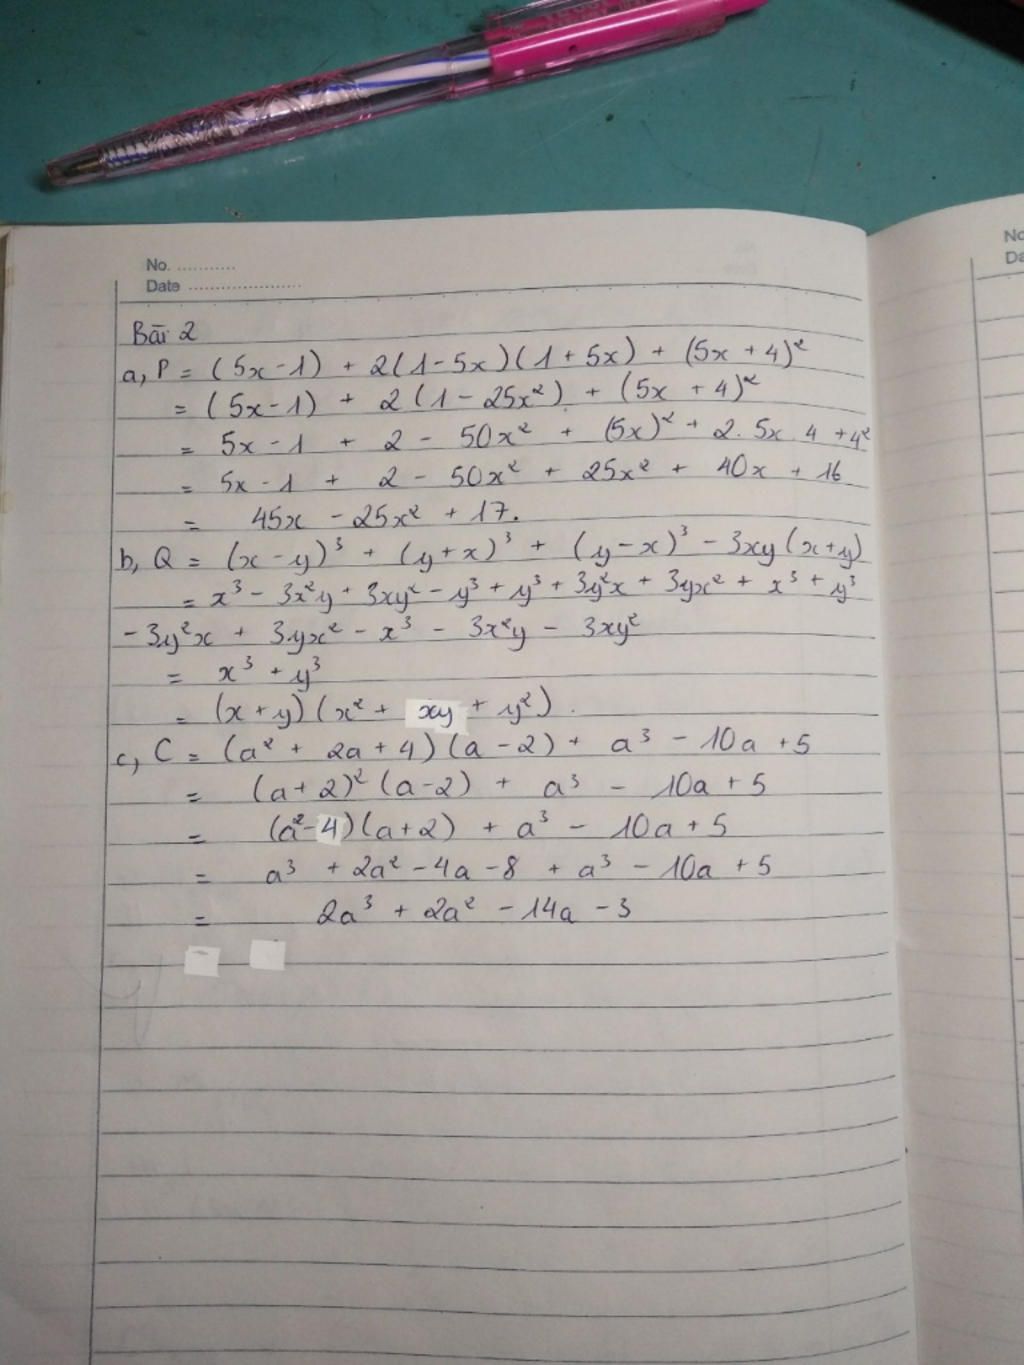 No. ...........
Date .....................
No
Da
Bài 2
a, P = (5x-1) + 2(1-5x)(1+5x) + (5x+4)²
= (5x-1) + 2(1-25x²) + (5x+4)²
= 5x-1 + 2 - 50x² + (5x)² + 2. 5x. 4 + 4²
= 5x-1 + 2 - 50x² + 25x² + 40x + 16
= 45x - 25x² + 17.
b, Q = (x-y)³ + (y+x)³ + (y-x)³ - 3xy(x+y)
= x³ - 3x²y + 3xy² - y³ + y³ + 3y²x + 3yx² + x³ + y³
-3y²x + 3yx² - x³ - 3x²y - 3xy²
= x³ + y³
= (x+y)(x² + xy + y²).
c, C = (a² + 2a + 4)(a-2) + a³ - 10a + 5
= (a+2)²(a-2) + a³ - 10a + 5
= (a²-4)(a+2) + a³ - 10a + 5
= a³ + 2a² - 4a - 8 + a³ - 10a + 5
= 2a³ + 2a² - 14a - 3